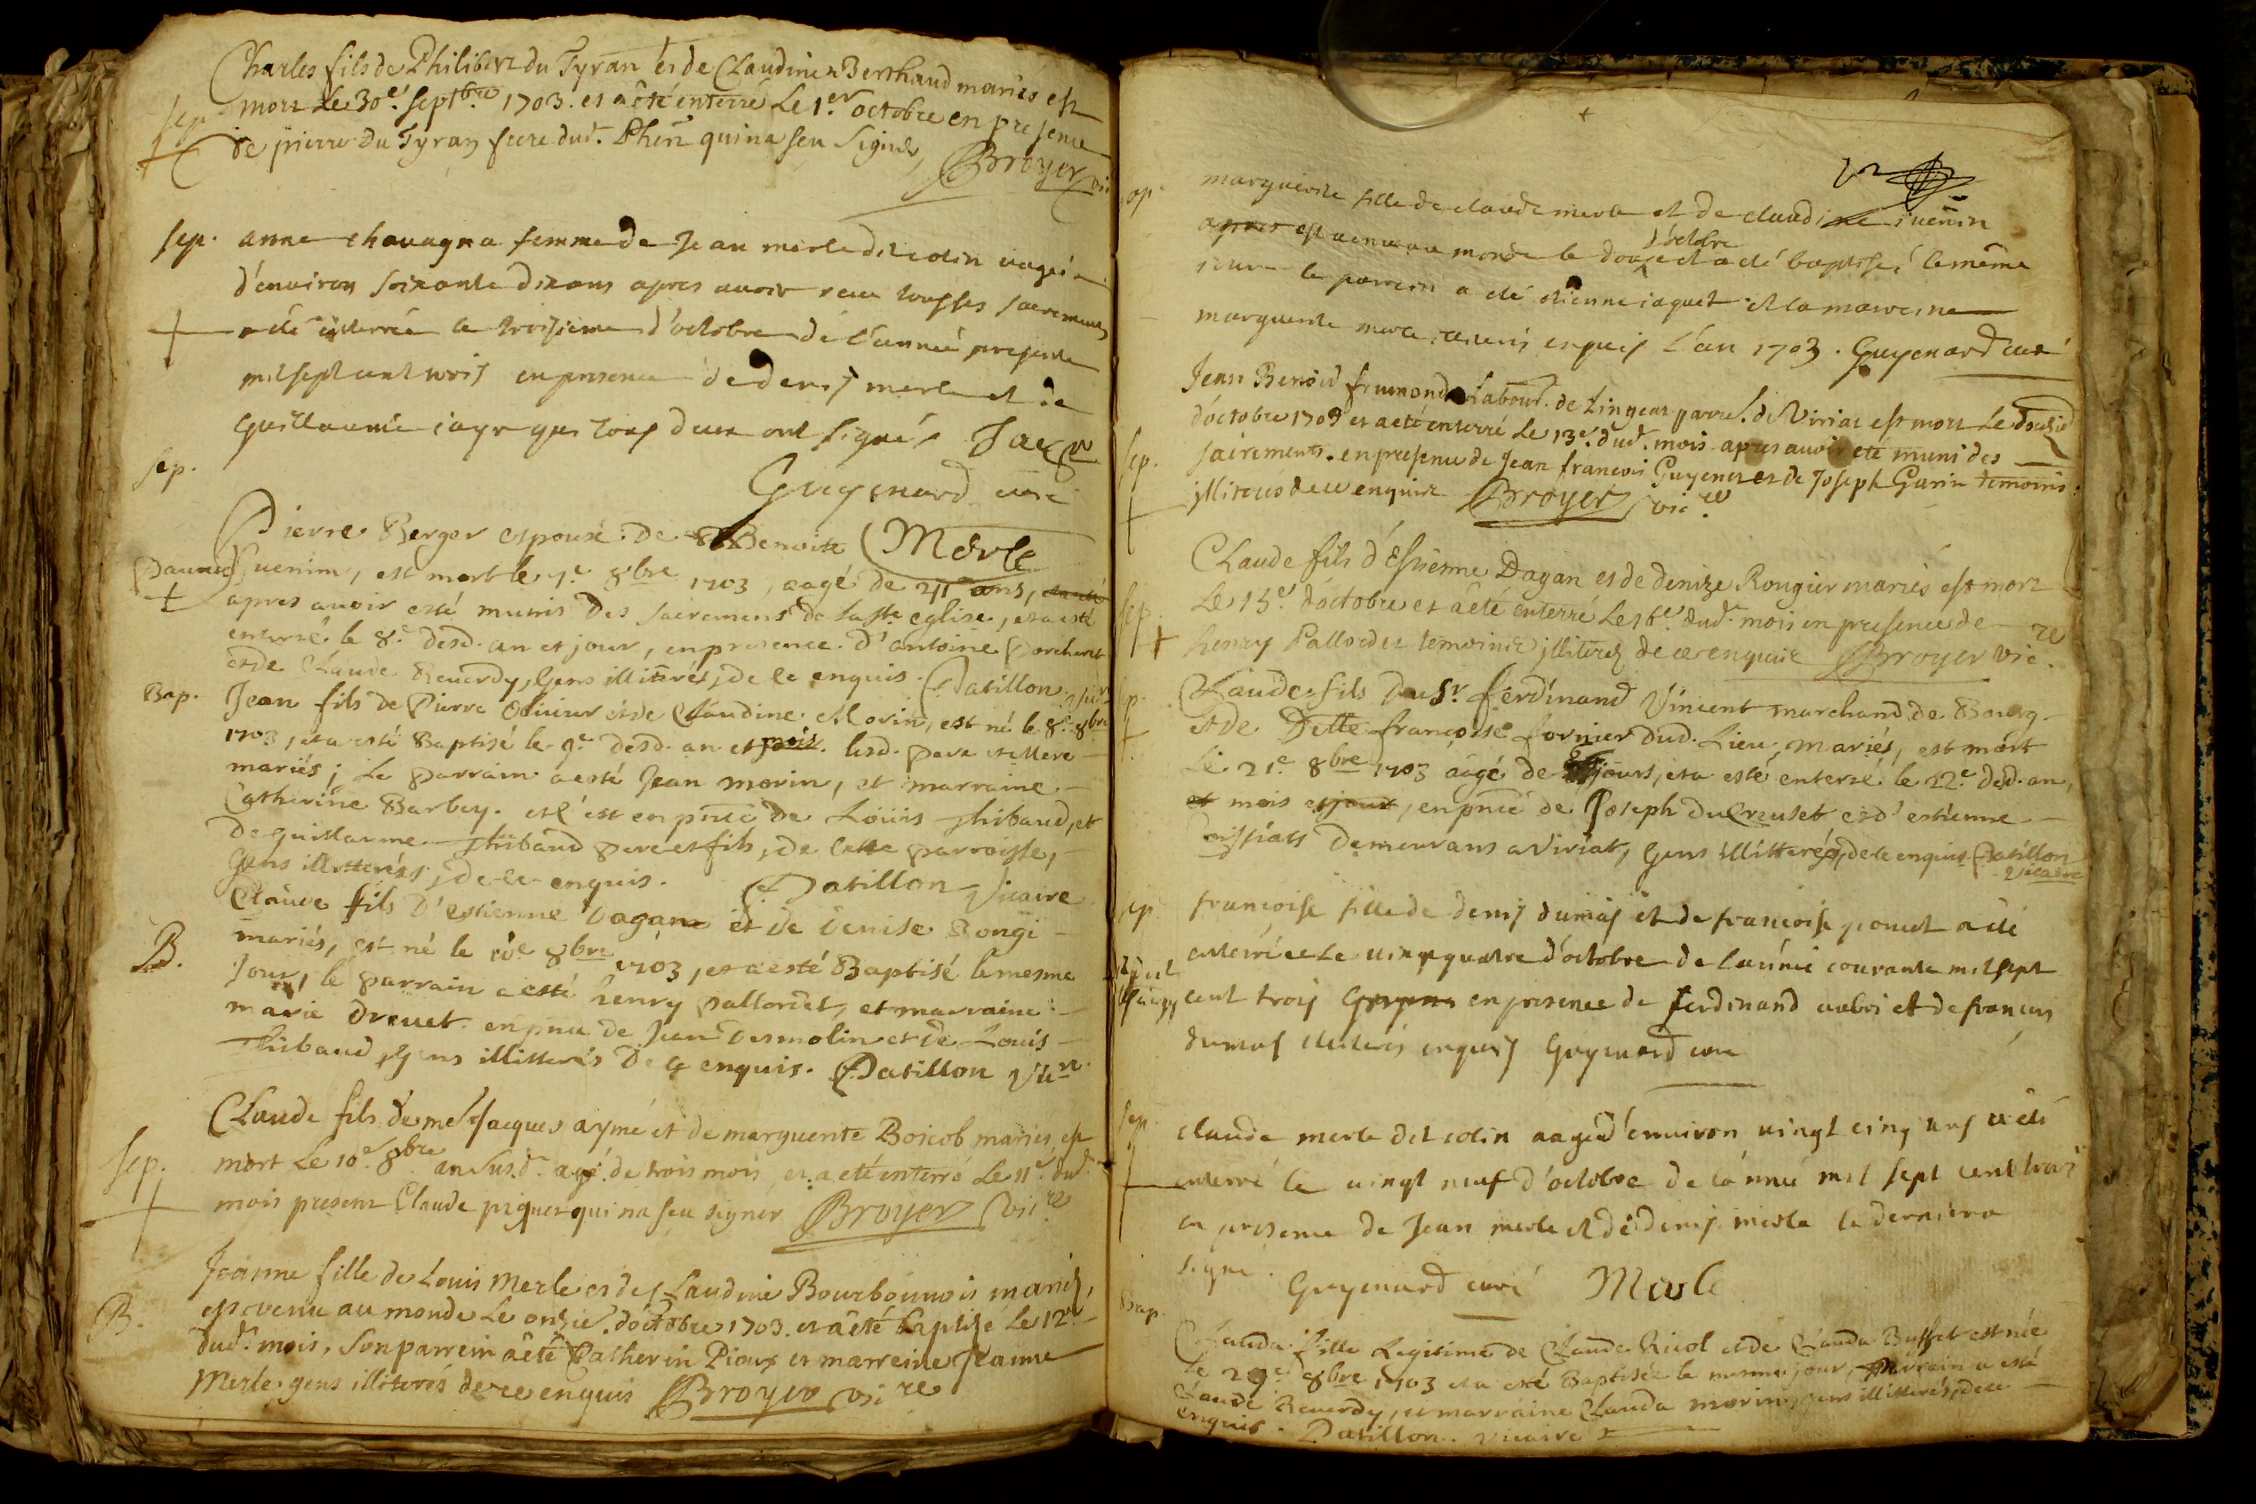 Charles fils de Philibert du Tyran et de Claudine Berthaud mariés est
sep. mort Le 30e. septbre 1703. et a été enterré Le 1er octobre en presence
de pierre du Tyran frere dud. Phirt qui na seu signer, Broyer vic
sep. anne chauagna femme de Jean merle dit colin aagéé
d'enuiron soixante dix ans apres auoir receu tous ses sacrements
a été enterrée le troisieme d'octobre dé l'année presente
mil sept cent trois en presence de denis merle et de
Guillaume iayr qui tous deux ont signés
sep.
Guyenard curé
Pierre Berger espoux de Benoite Merle
Juenim, est mort le 7e 8bre 1703, aagé de ans,
apres auoir esté munis des sacremens de la ste eglise, et a esté
enterré le 8e desd. an et jour, en presence d'antoine Porcheret
et de Claude Reuerdy, Gens illiterés, de ce enquis. Patillon
Bap. Jean fils de Pierre oliuier et de Claudine Morin, est né le 8e 8bre
1703, et a esté Baptisé le 9e desd. an et mois. lesd. pere et Mere
mariés; Le parrain a esté Jean morin, et marraine
Catherine Barbey. et c'est en pnce De Loüis Thibaud, et
de guillaume Thibaud pere et fils, de cette parroisse,
Gens illitterés, de ce enquis. Patillon Vicaire
Claude fils D'estienne Dagan et de Denise Rongi
B. mariés, est né le 10e 8bre 1703, et a esté Baptisé le mesme
Jour, le parrain a esté henry pallordet, et marraine
marie Dreuet. en pnce de Jean Desmolin et de Louis
Thibaud, Gens illitterés De ce enquis. Patillon Vic.
Claude fils de me Jacques aymé et de marguerite Boicob mariés est
sep. mort Le 10e 8bre an susd. agé de trois mois, et a été enterré Le 11e dud.
mois present Claude piquet qui na seu signer Broyer vicre
Jeanne fille de Louis Merle et de Claudine Bourbonnois mariés,
B. est venue au monde Le onzie. d'octobre 1703. et a été baptisé Le 12e
dud. mois, son parrein a été Catherin Pioux et marreine Jeanne
Merle gens illiterés de ce enquis Broyer vicre
marguerite fille de claude merle et de claudine iuenin
d'octobre
apres est uenue au monde le douze et a été baptiseé le même
iour le parrein a été etienne iaquet et la marreine
marguerite merle enquis L'an 1703. Guyenard curé
Jean Benoid frumond labour. de Lingeat parroi. de Viriat est mort Le douzie
d'octobre 1703 et a été enterré Le 13e. dud. mois apres auoir eté muni des
sep. sacrements. en presence de Jean francois Guyenet et de Joseph Gurin temoins
illiterés de ce enquis Broyer vicre
Claude fils d'Estienne Dagan et de denize Rongier mariés est mort
sep. Le 15e d'octobre et a été enterré Le 16e dud. mois en presence de
henry Pallordet temoins illiterez de ce enquis Broyer vic.re
Claude fils du Sr. ferdinand Vincent marchand de Bourg
et de Delle francoise fornier dud. Lieu, mariés, est mort
Le 21e 8bre 1703 aagé de jours, et a esté enterré le 22e desd. an,
et mois et jour, en pnce de Joseph du Creuset et d'estienne
demeurans a Viriat, Gens illitterés, de ce enquis Patillon
Vicaire
sep. francoise fille de denis dumas et de francoise ponet a été
enterrée Le uingt quatre d'octobre de l'année courante mil sept
cent trois en presence de ferdinand aubri et de francois
dumas illiterés enquis Guyenard curé
sep. claude merle dit colin aagé d'enuiron uingt cinq ans a été
enterré le uingt neuf d'octobre de l'année mil sept cent trois
en presence de Jean merle et de denis merle le dernier a
signé. Guyenard curé Merle
Bap.
Clauda fille Legitime de Claude Ricol et de Clauda Buffet est née
le 29e 8bre 1703 et a esté Baptisée le mesme jour, parrain a esté
Claude Reuerdy, et marraine Clauda morin, gens illitterés, de ce
enquis. Patillon. vicaire